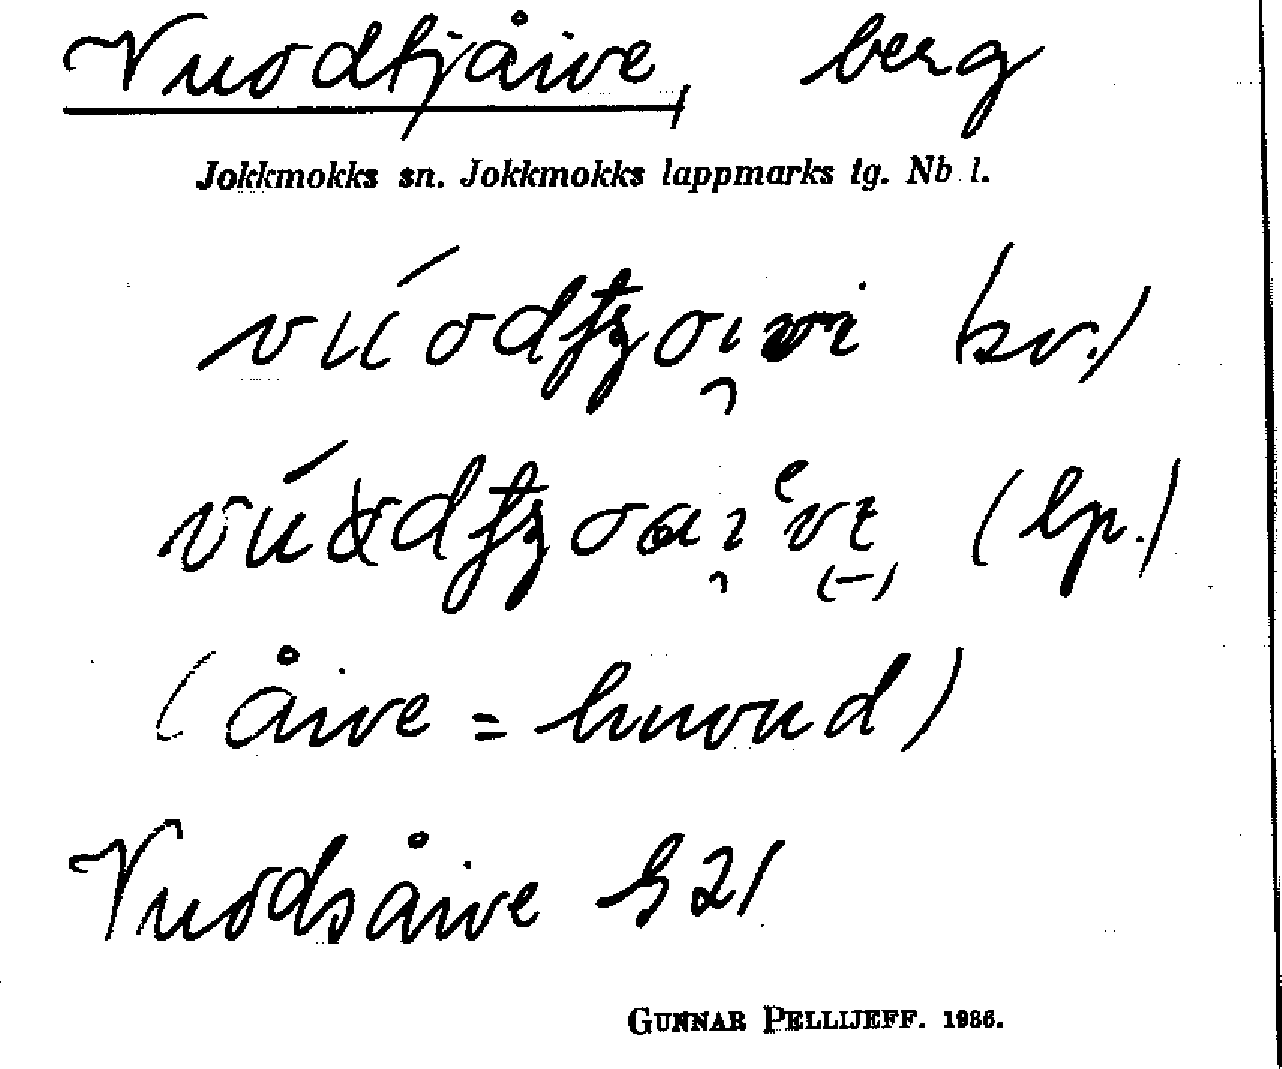 Vuodtjåive, berg
Jokkmokks sn. Jokkmokks lappmarks tg. Nb l.
(sv.)
(lp.)
(åive = huvud)
Vuodsåive h 21
GUNNAR PELLIJEFF. 1936.